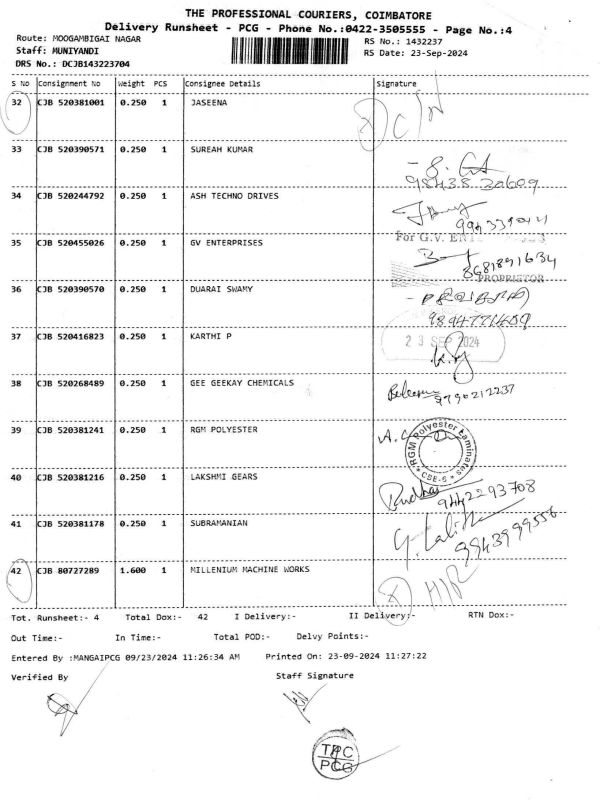 THE PROFESSIONAL COURIERS, COIMBATORE
Delivery Runsheet - PCG - Phone No.:0422-3505555 - Page No.:4
Route: MOOGAMBIGAI NAGAR
RS No.: 1432237
Staff: MUNIYANDI
RS Date: 23-Sep-2024
DRS No.: DCJB143223704
S No Consignment No Weight PCS Consignee Details Signature
32 CJB 520381001 0.250 1 JASEENA
33 CJB 520390571 0.250 1 SUREAH KUMAR
98438 30609
34 CJB 520244792 0.250 1 ASH TECHNO DRIVES
For G.V.
35 CJB 520455026 0.250 1 GV ENTERPRISES
8681891634
PROPRIETOR
36 CJB 520390570 0.250 1 DUARAI SWAMY
23 SEP 2024
37 CJB 520416823 0.250 1 KARTHI P
38 CJB 520268489 0.250 1 GEE GEEKAY CHEMICALS
9790212237
39 CJB 520381241 0.250 1 RGM POLYESTER
RGM Polyester Laminates
CBE-6
40 CJB 520381216 0.250 1 LAKSHMI GEARS
9442293708
41 CJB 520381178 0.250 1 SUBRAMANIAN
9943999556
42 CJB 80727289 1.600 1 MILLENIUM MACHINE WORKS
Tot. Runsheet:- 4 Total Dox:- 42 I Delivery:- II Delivery:- RTN Dox:-
Out Time:- In Time:- Total POD:- Delvy Points:-
Entered By :MANGAIPCG 09/23/2024 11:26:34 AM Printed On: 23-09-2024 11:27:22
Verified By Staff Signature
TPC
PCG